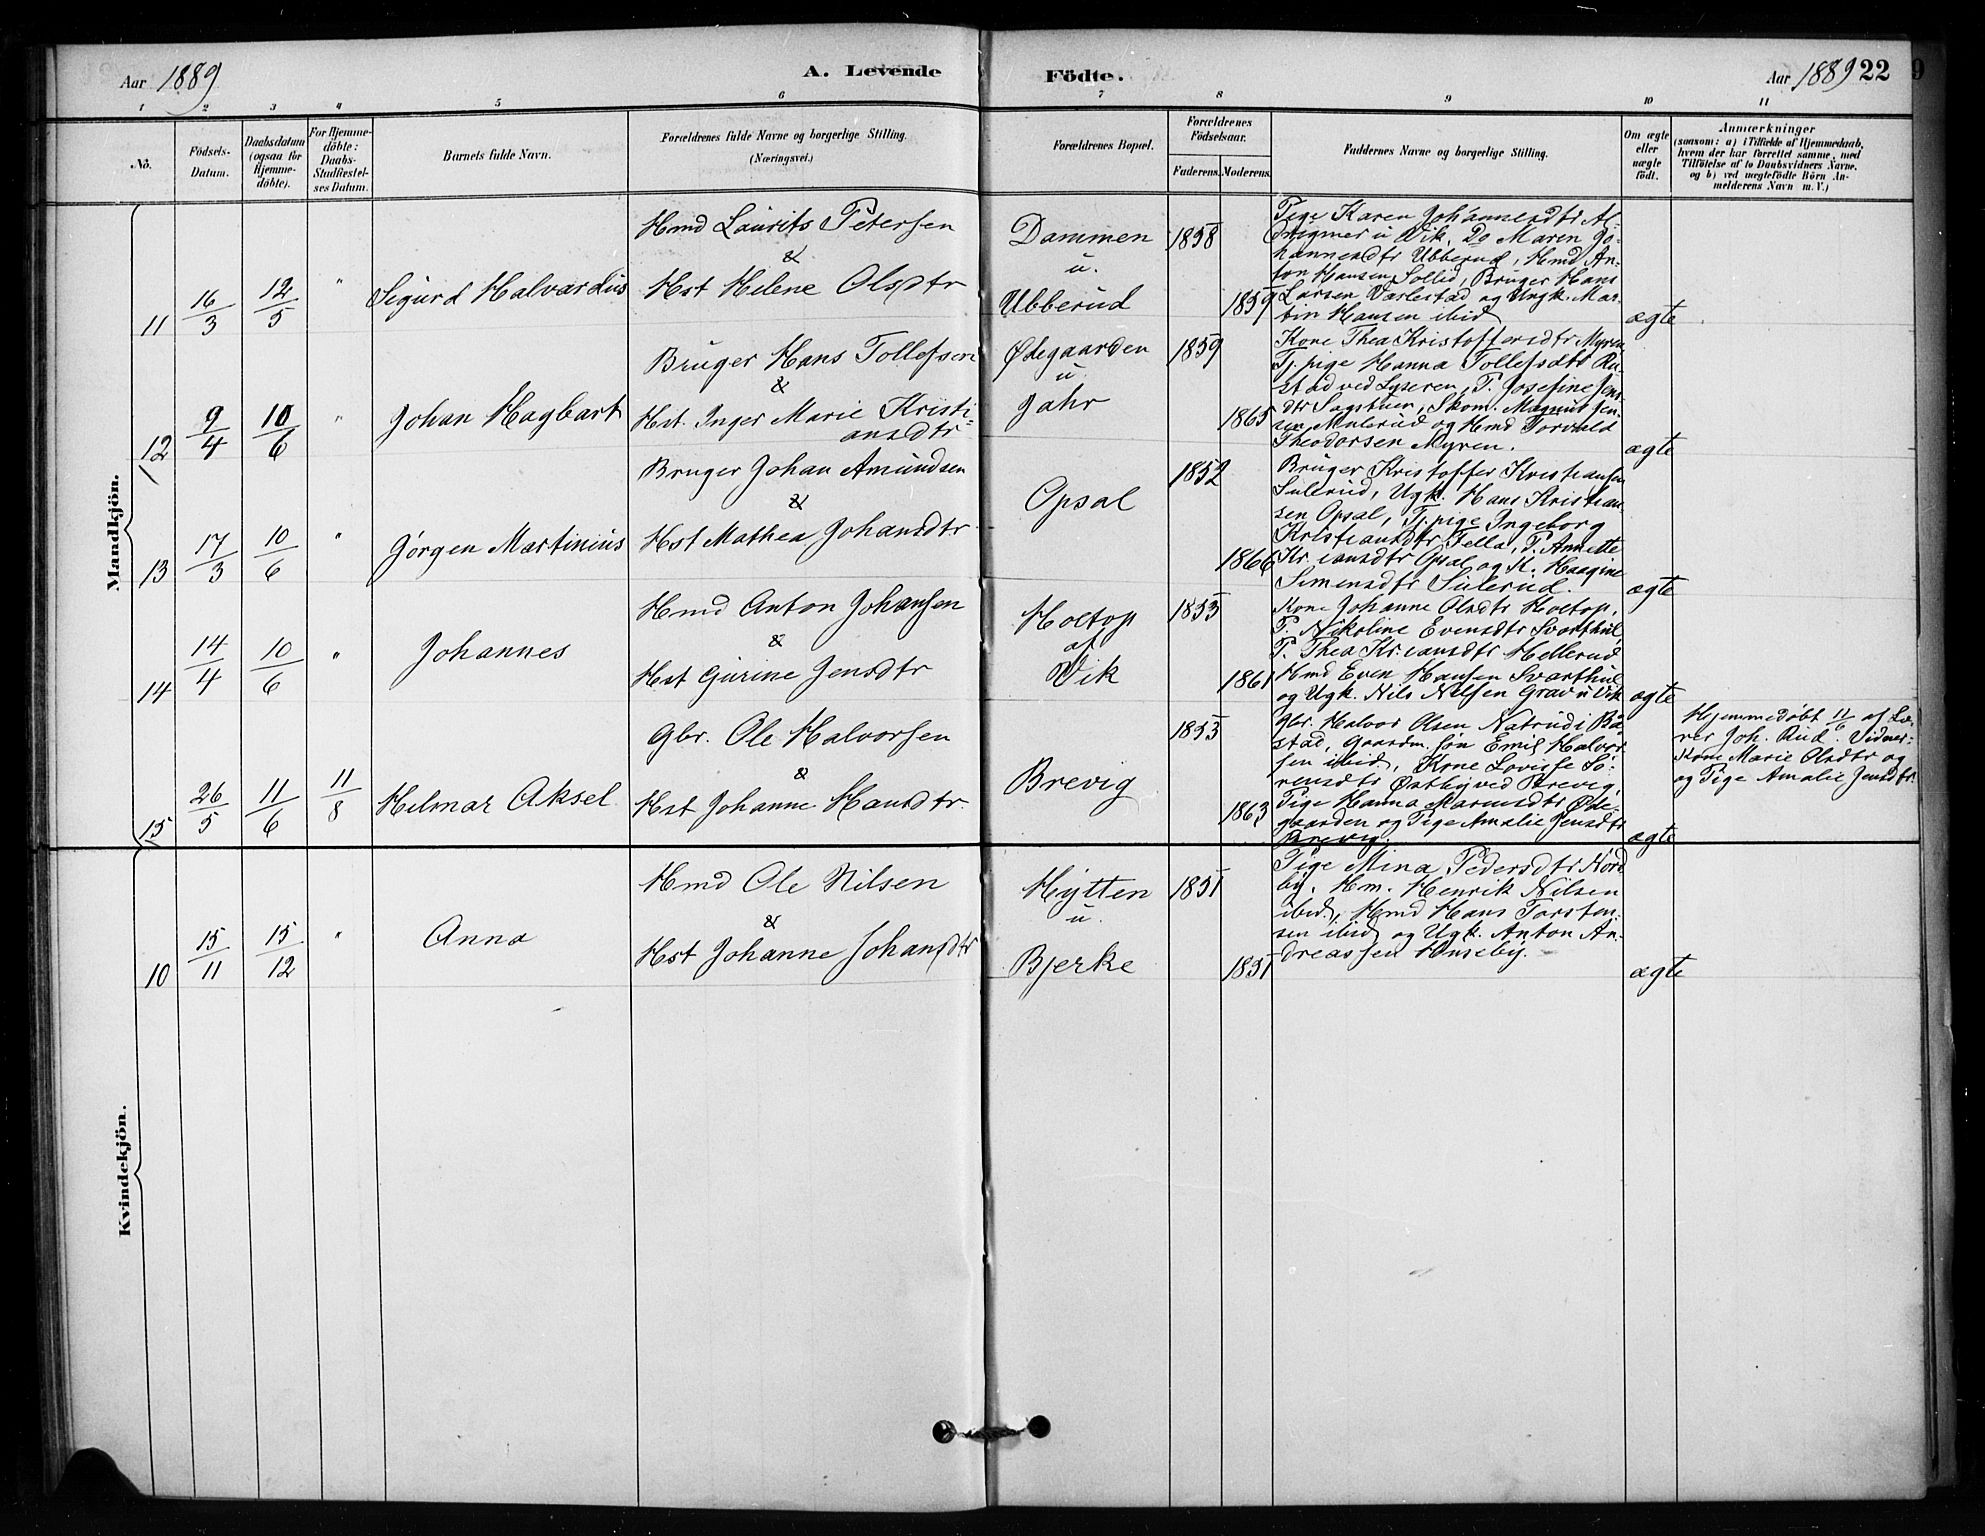 Aar 1889
A. Levende
Födte.
Aar 1889
22
9
1 2 3 4 5 6 7 8 9 10 11
No.
Födsels-
Datum.
Daabsdatum
(ogsaa for
Hjemme-
döbte).
For Hjemme-
döbte:
Daabs-
Stadfæstel-
ses Datum.
Barnets fulde Navn.
Forældrenes fulde Navne og borgerlige Stilling.
(Næringsvei.)
Forældrenes Bopæl.
Forældrenes
Födselsaar.
Faderens. Moderens.
Faddernes Navne og borgerlige Stilling.
Om ægte
eller
uægte
födt.
Anmærkninger
(saasom: a) i Tilfælde af Hjemmedaab,
hvem der har forrettet samme, med
Tilföielse af to Daabsvidners Navne,
og b) ved uægtefödte Börn An-
melderens Navn m. V.)
Mandkjön.
11
16/3
12/5
"
Sigurd Halvardius
Hmd Laurits Petersen
&
Hst Helene Olsdtr
Dammen
u.
Ubberud
1858
1859
Pige Karen Johannesdtr
u Vik, Do Maren Jo-
hannesdtr Ubberud, Hmd An-
ton Hansen Sollid, Bruger Hans
Larsen Varlestad og Ungk. Mar-
tin Hansen ibid
ægte
12
9/4
10/6
"
Johan Hagbart
Bruger Hans Tollefsen
&
Hst. Inger Marie Kristi-
ansdtr
Ødegaarden
u.
Jahr
1859
1865
Kone Thea Kristoffersdtr Myren
Tj. pige Hanna Tollefsdtr Ru-
stad ved Lyseren, P. Josefine Jens
dtr Sagstuen, Skom. Magnus Jen-
sen Mulerud og Hmd Torvald
Theodorsen Myren.
ægte
13
17/3
10/6
"
Jørgen Martinius
Bruger Johan Amundsen
&
Hst Mathea Johansdtr
Opsal
1852
1866
Bruger Kristoffer Kristiansen
Sulerud, Ugk. Hans Kristian-
sen Opsal, Tj. pige Ingeborg
Kristiansdtr Fella, P. Annette
Kr.iansdtr Opsal og K. Haagine
Simensdtr Sulerud.
ægte
14
14/4
10/6
"
Johannes
Hmd Anton Johansen
&
Hst Gurine Jensdtr
Holtop
af
Vik
1853
1861
Kone Johanne Olsdtr Holtop,
P. Nikoline Evensdtr Svarthul,
P. Thea Kr.iansdtr Hellerud
Hmd Even Hansen Svarthul
og Ugk. Nils Nilsen Grav u Vik
ægte
15
26/5
11/6
11/8
Hilmar Aksel
Gbr. Ole Halvorsen
&
Hst Johanne Hansdtr.
Brevig
1853
1863
Gbr. Halvor Olsen Natrud i Bå-
stad, Gaardm. søn Emil Halvor-
sen ibid., Kone Lovisse Sö-
rensdtr Østby ved Brevig,
Pige Hanna Marensdtr Øde-
gaarden og Pige Amalie Jensdtr
Brevig.
ægte
Hjemmedøbt 11/6 af Læ-
rer Joh. Rud. Vidner:
Kone Marie Olsdtr og
og Pige Amalie Jensdtr.
Kvindekjön.
10
15/11
15/12
"
Anna
Hmd Ole Nilsen
&
Hst Johanne Johansdtr
Hytten
u.
Bjerke
1851
1851
Pige Mina Pedersdtr Nord
by, Hm. Henrik Nilsen
ibid., Hmd Hans Torsten-
sen ibid og Ugk. Anton An-
dreassen Huseby.
ægte